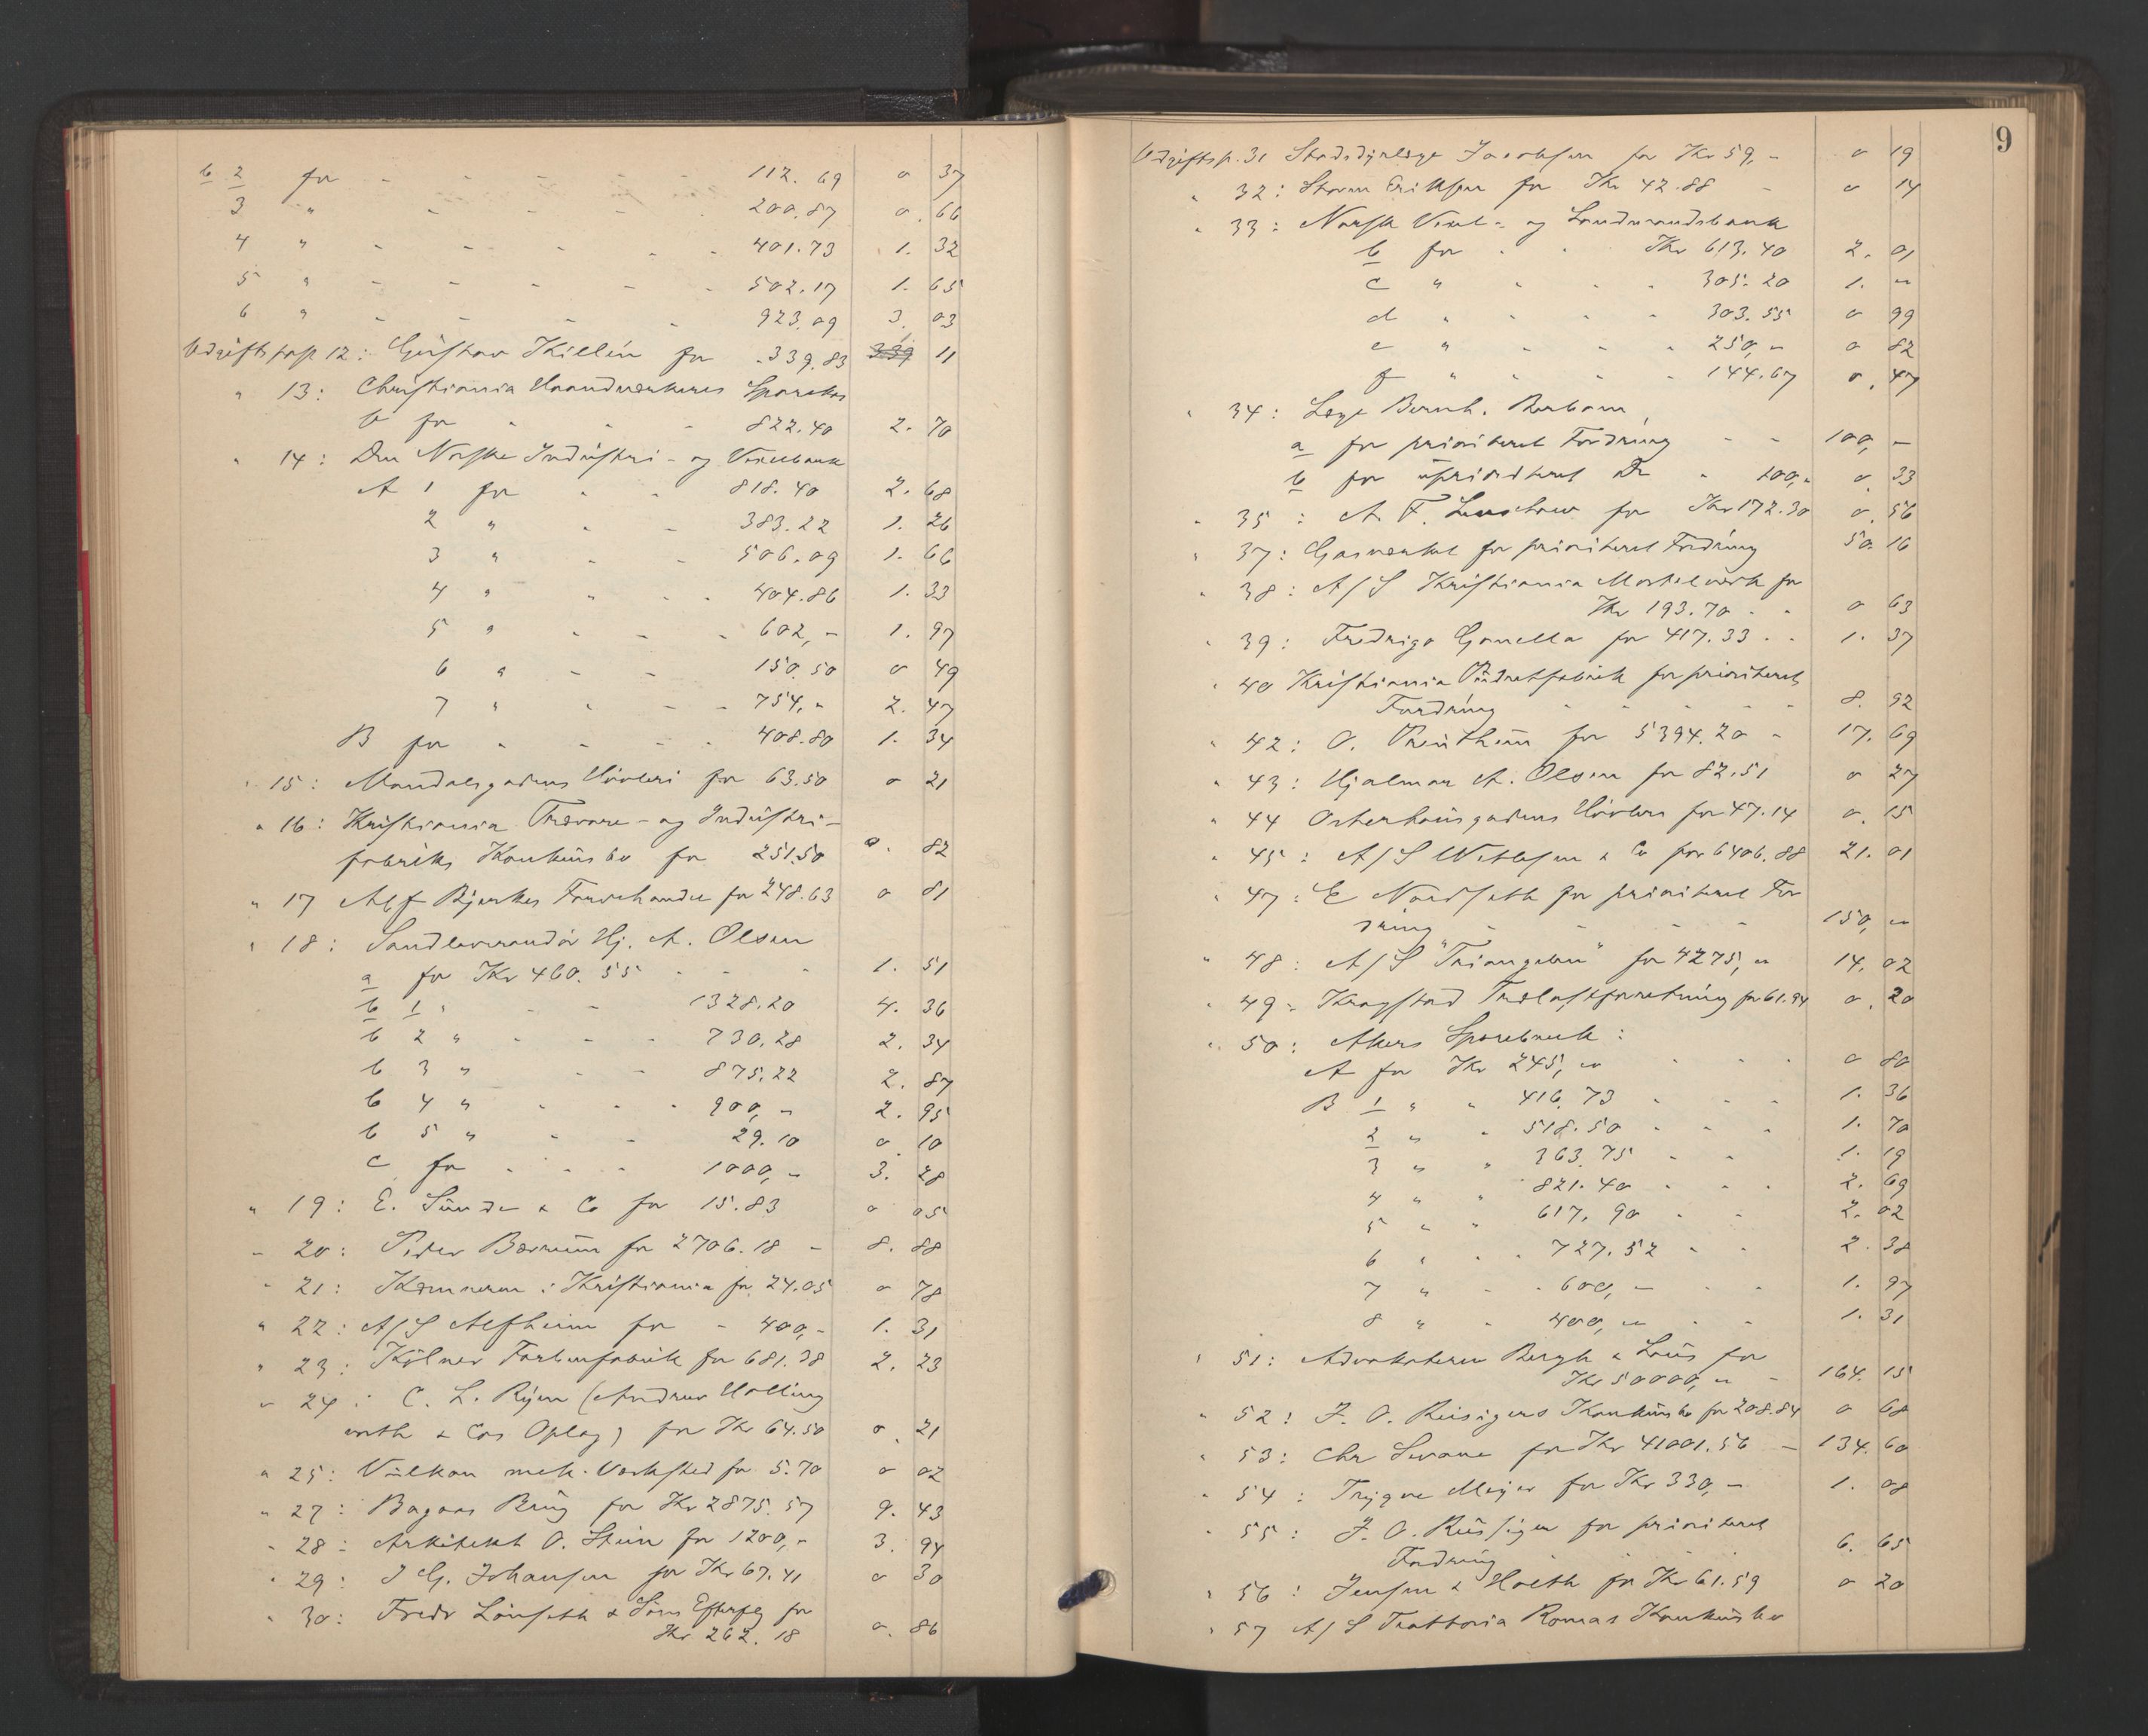 b 2 for - - - - - 112.69 0 37
3 " - - - - 200.87 0.66
4 " - - - - - 401.73 1.32
5 " - - - - - 502.17 1.65
6 " - - - - 923.09 3.03
Udgiftspost 12: Gustav Killén for - 339.83 1 11
" 13: Christiania Haandverkeres Sparekas
b for - - - 822.40 2.70
" 14: Den Norske Industri- og Vexelbank
A 1 for - - 818.40 2.68
2 " - - 383.22 1.26
3 " - - 506.09 1.66
4 " - - - 404.86 1.33
5 " - - - 602,- 1.97
6 " - - 150.50 0 49
7 " - - - 754,- 2.47
B for - - - - 408.80 1.34
" 15: Mandalsgadens Høvleri for 63.50 0 21
" 16: Kristiania Trævare- og Industri-
fabriks Konkursbo for 251.50 0.82
" 17 Alf Bjerkes Farvehandel for 248.63 0 81
" 18: Sandleverandør Hj. A. Olsen
a for Kr 460.55 - - - 1.51
b 1 " - - 1328.20 4.36
b 2 " - - - 730.28 2.34
b 3 " - - 875.22 2.87
b 4 " - - - 900,- 2.95
b 5 " - - 29.10 0 10
c for - - - 1000,- 3.28
" 19: E. Sunde & Co for 15.83 0 05
" 20: Peder Bærum for 2706.18 - 8.88
" 21: Kæmneren i Kristiania for 24.05 0 78
" 22: A/S Alfheim for - 400,- 1.31
" 23: Kölner Farbenfabrik for 681.38 2.23
" 24: C. L. Ryen (Andrew Holling
worth & Cos Oplag) for Kr 64.50 0.21
" 25: Vulkan mek. Verksted for 5.70 0 02
" 27: Bagaas Brug for Kr 2875.57 9.43
" 28: Arkitekt O. Stein for 1200,- 3.94
" 29: J G. Johansen for Kr 67.41 0 30
" 30: Fredr Lønseth & Søns Efterfg for
Kr 262.18 0.86
9
Udgiftsp. 31 Stadsdyrlæge Jacobsen for Kr 59,- 0 19
" 32: Storm Eriksen for Kr 42.88 - 0 14
" 33: Norsk Vexel- og Landmandsbank
b for - - Kr 613.40 2.01
c " - - - 305.20 1. -
d " - - - 303.55 0 99
e " - - - 250,- 0 82
f " - - - 144.67 0.47
" 34: Læge Bernh.
a for prioriteret Fordring - - 100,-
b for uprioriteret Do - 100,- 0.33
" 35: A. F. for Kr 172.30 0.56
" 37: Gasverket for prioriteret Fordring 50.16
" 38: A/S Kristiania Mørtelverk for
Kr 193.70 - - 0 63
" 39: Fredrigo Gianella for 417.33 - - 1.37
" 40 Kristiania Pudretfabrik for prioriteret
Fordring - - - - - 8.92
" 42: O. Treuthem for 5394.20 - 17.69
" 43: Hjalmar A. Olsen for 82.51 0 27
" 44 Osterhausgadens Høvleri for 47.14 0.15
" 45: A/S & Co for 6406.88 21.01
" 47: E Nordseth for prioriteret For
dring - - - - 150,-
" 48: A/S "Triangelen" for 4275,- 14.02
" 49 - Kragstad Trælastforretning for 61.94 0.20
" 50: Akers Sparebank:
A for Kr 245,- - - - 0 80
B 1 " " 416.73 - - - 1.36
2 " " 518.50 - - - 1.70
3 " " 363.75 - - 1.19
4 " " 821.40 - - - 2.69
5 " " 617.90 - - 2.02
6 " - - 727.52 - - 2.38
7 " - - 600,- - - 1.97
8 " " 400,- - - 1.31
" 51: Advokaterne Bergh & Lous for
Kr 50000,- - 164.15
" 52: J. O. Reisigers Konkursbo for 208.84 0 68
" 53: Chr Svane for Kr 41001.56 - 134.60
" 54: Trygve Meyer for Kr 330,- 1.08
" 55: J. O. Reisiger for prioriteret
Fordring - - - 6.65
" 56: Jensen & Holth for Kr 61.59 0 20
" 57 A/S Trattoria Romas Konkursbo